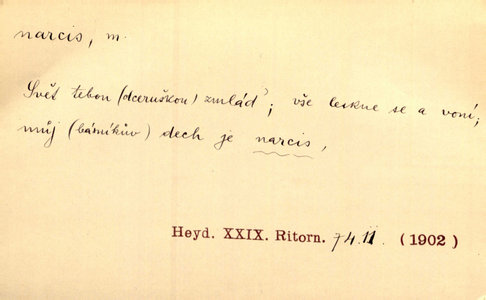 narcis, m.
Svět tebou (dceruškou) zmlád'; vše leskne se a voní;
můj (básníkův) dech je narcis,
Heyd. XXIX. Ritorn. 74.II. (1902)